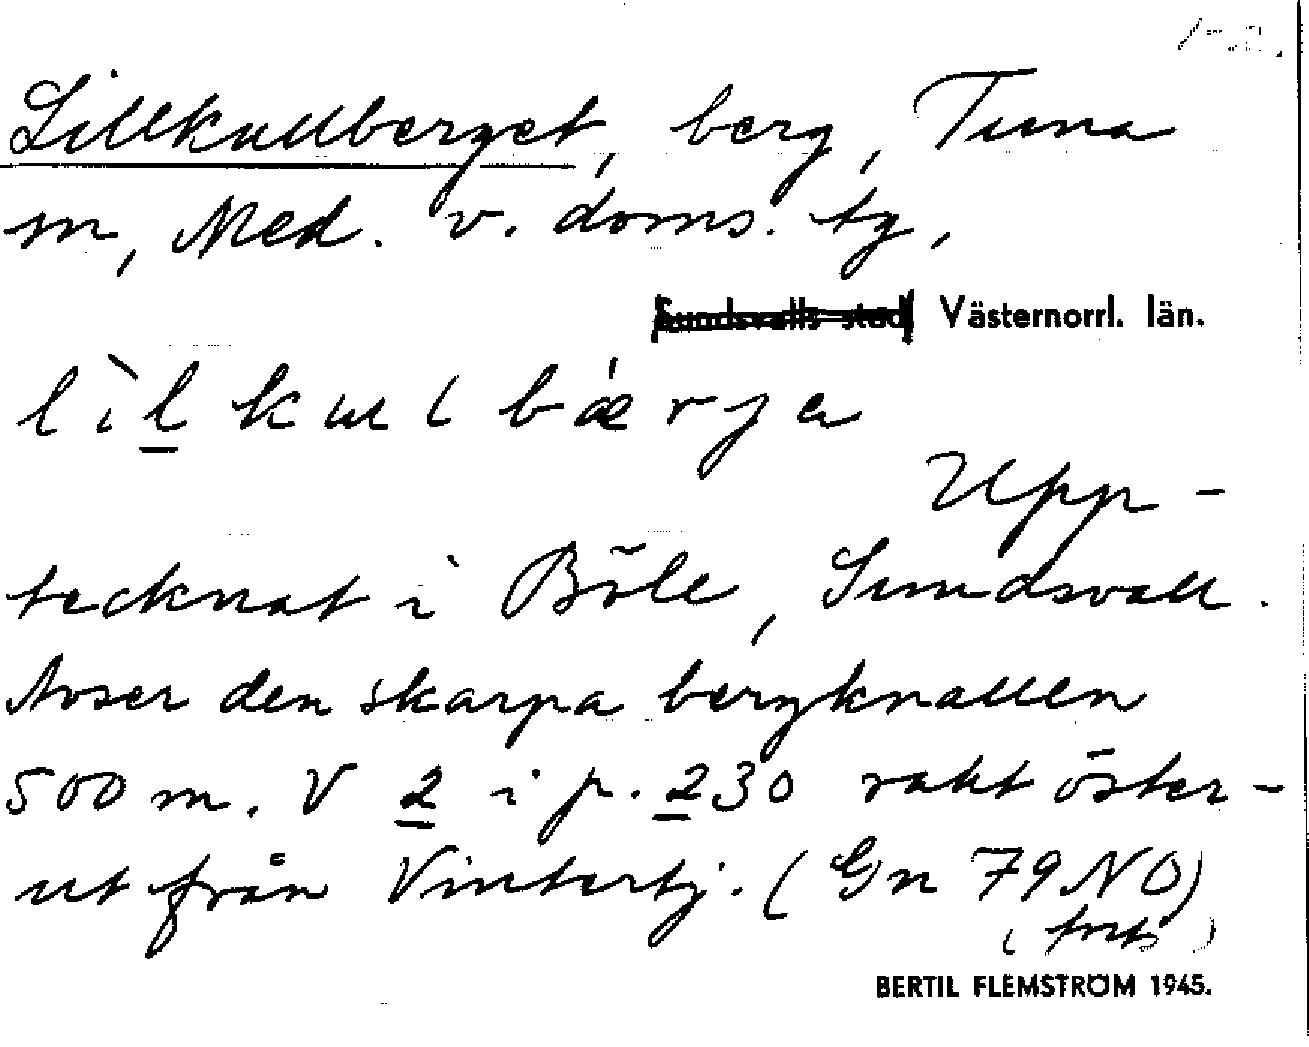 1-2.
Lillkullberget, berg, Tuna
m, Med. v. doms. tg,
Sundsvalls stad Västernorrl. län.
lìlkulbǽrja
Upp-
tecknat i Böle, Sundsvall.
Avser den skarpa bergknallen
500 m. V 2 i p. 230 rakt öster-
ut från Vintertj. (Gn 79 NO)
(forts)
BERTIL FLEMSTRÖM 1945.